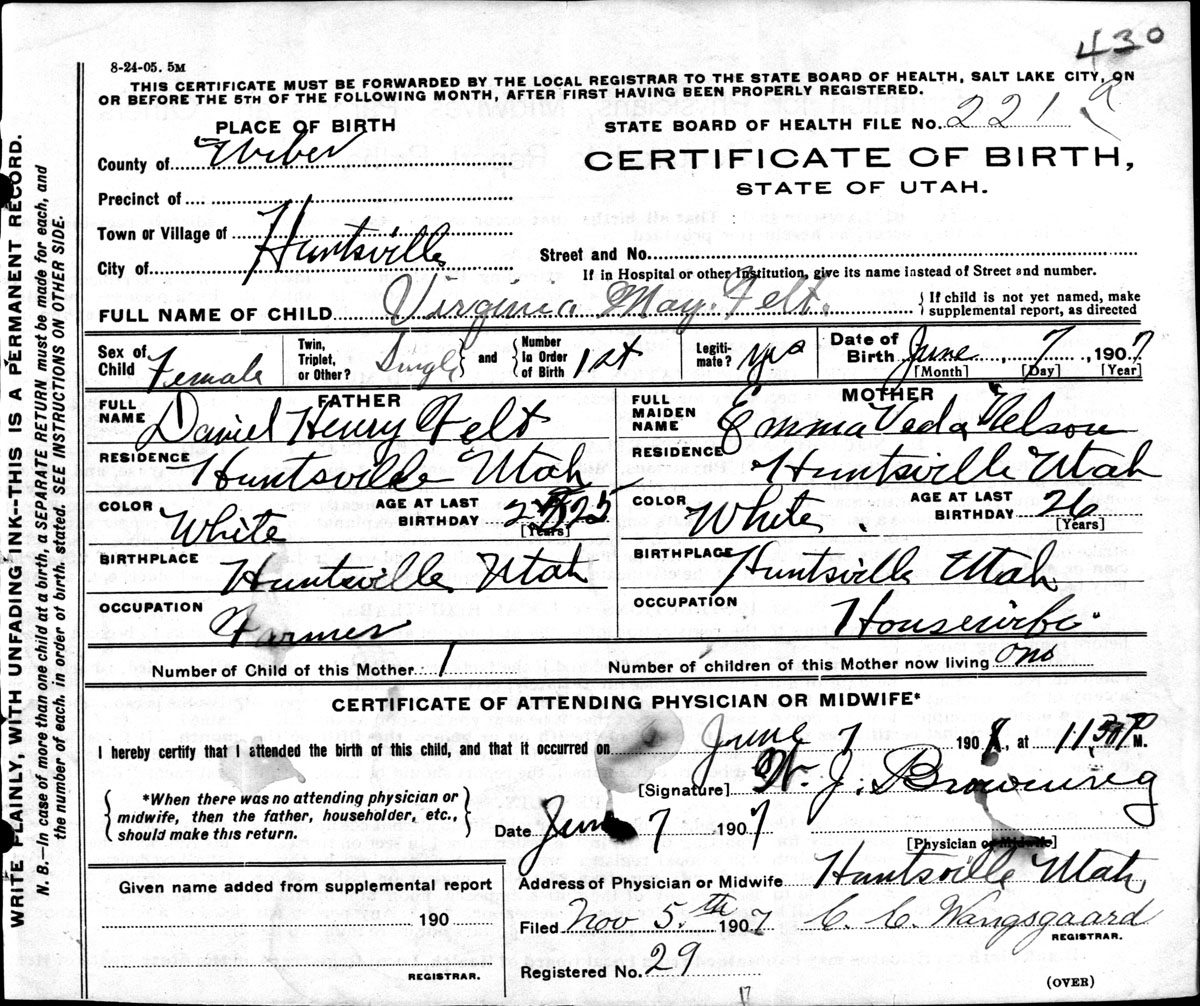 430
8-24-05. 5M
THIS CERTIFICATE MUST BE FORWARDED BY THE LOCAL REGISTRAR TO THE STATE BOARD OF HEALTH, SALT LAKE CITY, ON
OR BEFORE THE 5TH OF THE FOLLOWING MONTH, AFTER FIRST HAVING BEEN PROPERLY REGISTERED.
PLACE OF BIRTH
STATE BOARD OF HEALTH FILE No. 221 a
County of Weber
CERTIFICATE OF BIRTH,
STATE OF UTAH.
Precinct of
Town or Village of Huntsville
City of
Street and No.
If in Hospital or other Institution, give its name instead of Street and number.
FULL NAME OF CHILD Virginia May Felt. } If child is not yet named, make supplemental report, as directed
Sex of Child Female Twin, Triplet, or Other? Single } and { Number In Order of Birth 1st Legiti- mate? yes Date of Birth June 7, 1907
[Month] [Day] [Year]
FATHER
FULL NAME Daniel Henry Felt
RESIDENCE Huntsville Utah
COLOR White AGE AT LAST BIRTHDAY 25
[Years]
BIRTHPLACE Huntsville Utah
OCCUPATION Farmer
MOTHER
FULL MAIDEN NAME Emma Veda Nelson
RESIDENCE Huntsville Utah
COLOR White. AGE AT LAST BIRTHDAY 26
[Years]
BIRTHPLACE Huntsville Utah
OCCUPATION Housewife
Number of Child of this Mother 1 Number of children of this Mother now living one
CERTIFICATE OF ATTENDING PHYSICIAN OR MIDWIFE*
I hereby certify that I attended the birth of this child, and that it occurred on June 7 1907, at 11 30 P M.
[Signature] W. J. Browning
{ *When there was no attending physician or midwife, then the father, householder, etc., should make this return. }
Date June 7, 1907
[Physician or Midwife]
Address of Physician or Midwife Huntsville Utah
Given name added from supplemental report
190
REGISTRAR.
Filed Nov 5.th 1907 C. C. Wangsgaard
REGISTRAR.
Registered No. 29
(OVER)
17
WRITE PLAINLY, WITH UNFADING INK--THIS IS A PERMANENT RECORD.
N. B.—In case of more than one child at a birth, a SEPARATE RETURN must be made for each, and
the number of each, in order of birth. stated. SEE INSTRUCTIONS ON OTHER SIDE.